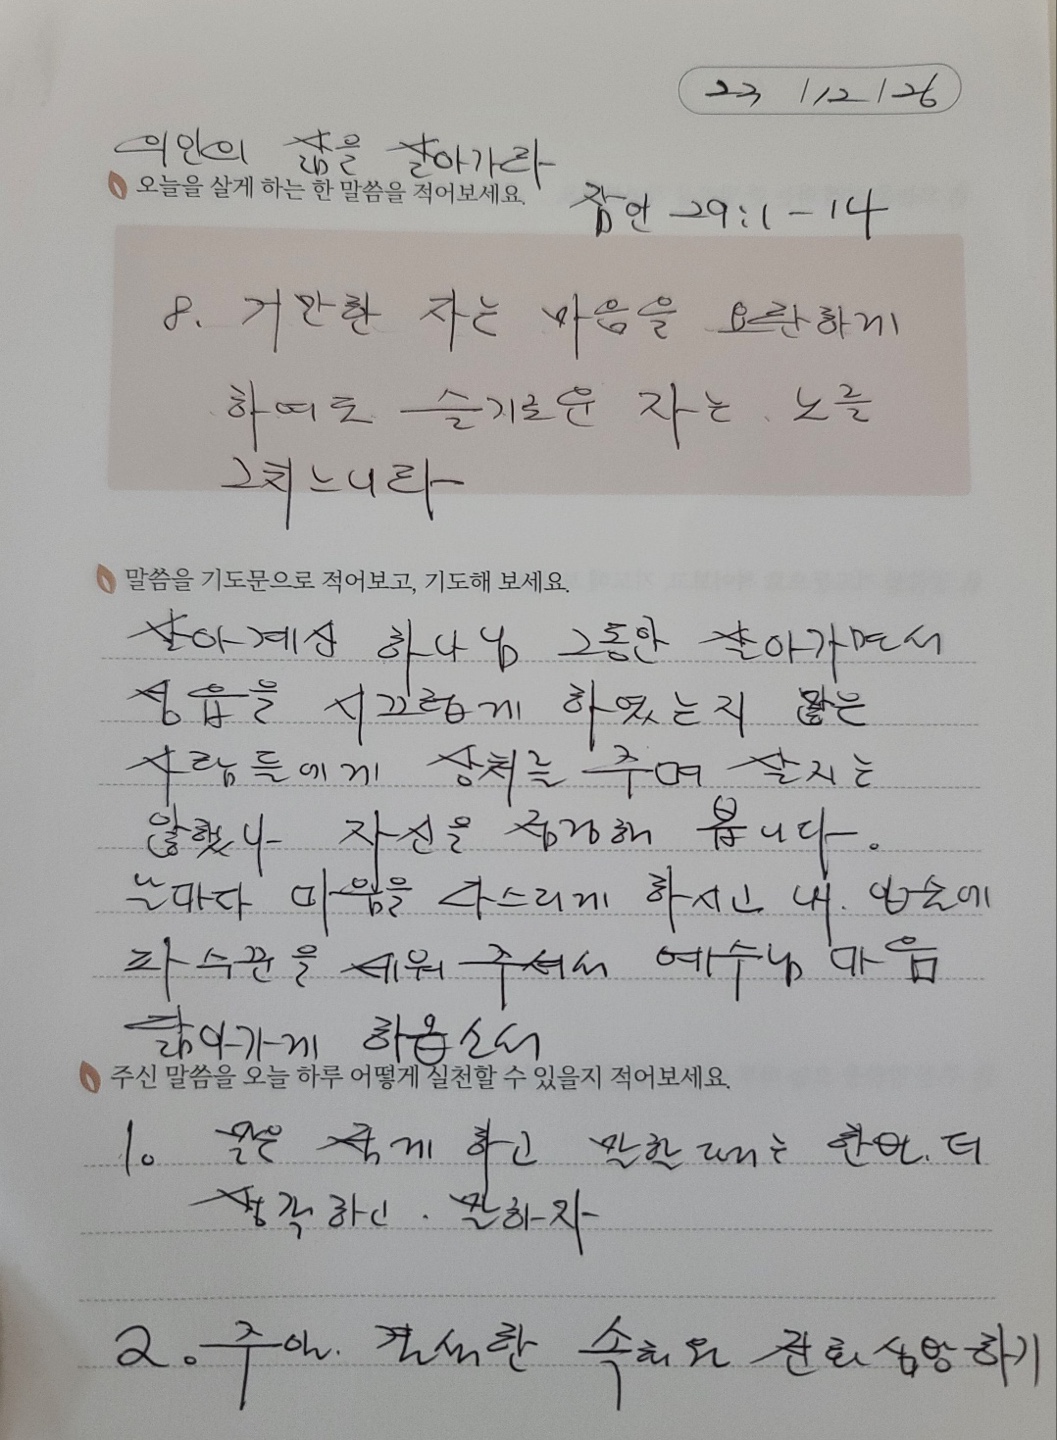 23 1/2/26
의인의 삶을 살아가라
오늘을 살게 하는 한 말씀을 적어보세요.
잠언 29:1-14
8. 거만한 자는 마음을 요란하게
하여도 슬기로운 자는 노를
그치느니라
말씀을 기도문으로 적어보고, 기도해 보세요.
살아계심 하나님 그동안 살아가면서
성읍을 시끄럽게 하였는지 많은
사람들에게 상처를 주며 살지는
않했나 자신을 점검해 봅니다.
날마다 마음을 다스리게 하시고 내 입술에
파수꾼을 세워 주셔서 예수님 마음
닮아가게 하옵소서
주신 말씀을 오늘 하루 어떻게 실천할 수 있을지 적어보세요.
1. 말은 적게 하고 말할 때는 한번 더
생각하고 말하자
2. 주안 결석한 속회원 전화 심방하기